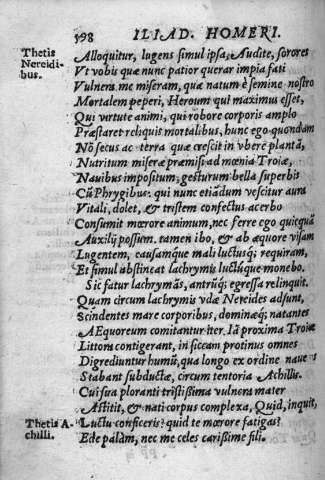 398 ILIAD. HOMERI.
Thetis
Nereidi-
bus.
Alloquitur, lugens simul ipsa, Audite, sorores
Vt vobis quæ nunc patior querar impia fati
Vulnera me miseram, quæ natum è semine nostro
Mortalem peperi, Heroum qui maximus esset,
Qui virtute animi, qui robore corporis amplo
Præstaret reliquis mortalibus, hunc ego quondam
Nō secus ac terra quæ crescit in vbere plantā,
Nutritum miseræ præmisi ad mœnia Troiæ,
Nauibus impositum, gesturum bella superbis
Cū Phrygibus. qui nunc etiādum vescitur aura
Vitali, dolet, & tristem confectus acerbo
Consumit mœrore animum, nec ferre ego quicquā
Auxilij possum. tamen ibo, & ab æquore visam
Lugentem, causamque mali luctusq; requiram,
Et simul abstineat lachrymis luctuque monebo.
Sic fatur lachrymās, antrūq; egressa relinquit.
Quam circum lachrymis vdæ Nereides adsunt,
Scindentes mare corporibus, dominæq; natantes
AEquoreum comitantur iter. Iā proxima Troiæ
Littora contigerant, in siccam protinus omnes
Digrediuntur humū, qua longo ex ordine naues
Stabant subductæ, circum tentoria Achillis.
Cui sua ploranti tristissima vulnera mater
Astitit, & nati corpus complexa, Quid, inquit,
Thetis A-
chilli.
Luctu conficeris? quid te mœrore fatigas?
Ede palàm, nec me celes carissime fili.